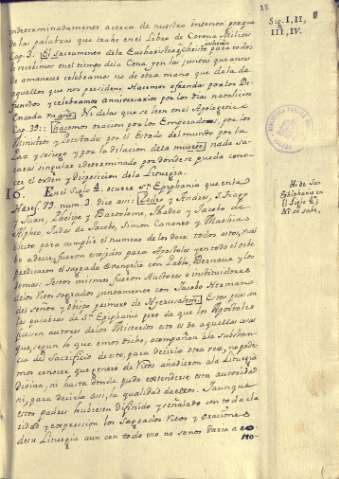 indeterminadamente acerca de nuestro interno porque
de las palabras que trahe en el Libro de Corona Militis
Cap. 3. El Sacramento dela Eucharistia q.e Christo
instituyó
para todos
le recivimos en el tiempo dela Cena, y en las juntas que antes
de amanecer celebramos no de otra mano que dela de
aquellos que nos presiden Hacemos ofrendas por los Di-
funtos y celebramos Anniversarios por los dias natalicios
en cada mano. Ni delas que se leen en el Apologetico
Cap. 39: hacemos oracion por los Emperadores, por los
Ministros y Potestades por el Estado del mundo por la
Paz y sosiego y por la dilacion dela muerte nada sa-
caras singular y determinado por donde se pueda cono-
cer el orden y disposicion dela Liturgia.
16. En el Siglo 4. ocurre S.n Epiphanio que en la
Heres. 79. num. 3. dice asi: Pedro y Andres, Santiago
y Juan, Phelipe y Bartolome, Thadeo y Jacobo de
Alpheo, Judas de Jacob, Simon Cananeo y Mathias
electo para cumplir el numero de los doce todos estos,
se debe decir, fueron elegidos para Apostoles y en todo el orbe
predicaron el sagrado Evangelio con Pablo, Bernave y los
demas. Y estos mismos fueron Autores e instituidores
delos Ritos sagrados juntamente con Jacobo Hermano
del señor y obispo primero de Hyerusalem. Estas pues son
las palabras de S.n Epiphanio pero de que los Apostoles
fuesen autores de los Misterios esto es de aquellas cosas
que, segun lo que emos dicho, acompañan ala substan-
cia de Sacrificio de esto, para decirlo otra vez, no pode-
mos conocer que genero de Ritos añadieron ala Liturgia
divina, ni hasta donde pudo extenderse esta autoridad
ni, para decirlo asi, la qualidad de ellos. Y aunque
estos padres hubiesen difinido y señalado con toda cla-
ridad y expresion los Sagrados Ritos y Oraciones
dela Liturgia aun con todo eso no se nos daria a co-
no-
Sig. I, II,
III, IV.
N.o de San
Epiphanio en
el Siglo 4.